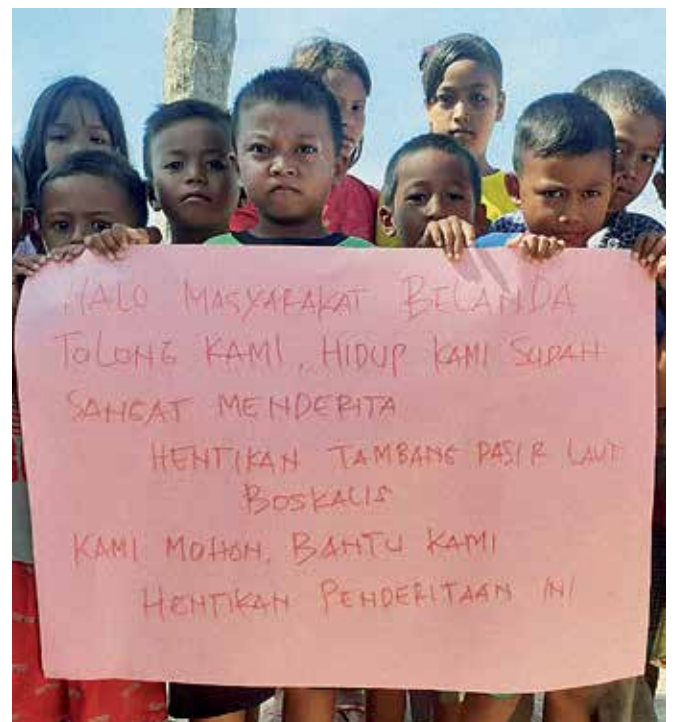 HALO MASYARAKAT BELANDA
TOLONG KAMI, HIDUP KAMI SUDAH
SANGAT MENDERITA
HENTIKAN TAMBANG PASIR LAUT
BOSKALIS
KAMI MOHON, BANTU KAMI
HENTIKAN PENDERITAAN INI